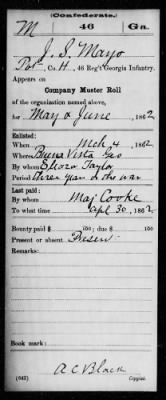 (Confederate.)
M 46 Ga.
J. S. Mayo
Pvt, Co. H, 46 Reg't Georgia Infantry.
Appears on
Company Muster Roll
of the organization named above,
for May & June, 1862
Enlisted:
When Mch 4, 1862
Where Buena Vista Geo
By whom Taylor
Period three years or the war
Last paid:
By whom Maj Cooke
To what time Apl 30, 1862
Bounty paid $ 50 ; due $ 100
Present or absent Present
Remarks:
Book mark:
A C Black
(642) Copyist.